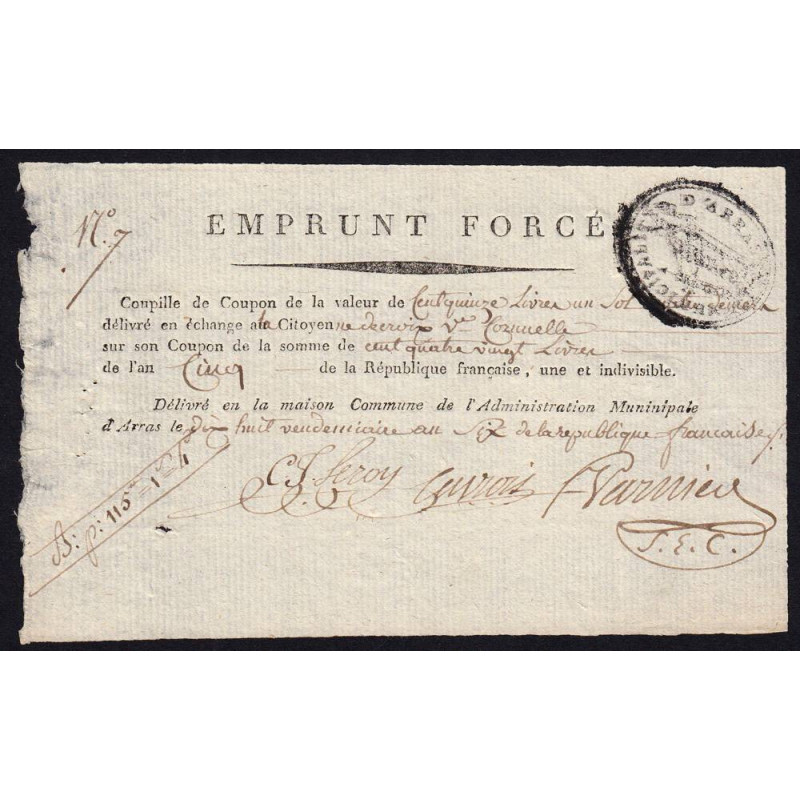 N.° 7
EMPRUNT FORCÉ
MUNICIPALITÉ D'ARRAS
Coupille de Coupon de la valeur de Cent quinze Livres un Sol
délivré en échange à la Citoyenne decroix V.e Cornuelle
sur son Coupon de la somme de cent quatre vingt Livres
de l'an Cinq de la République française, une et indivisible.
Délivré en la maison Commune de l'Administration Muninipale
d'Arras le dix huit vendemiaire an Six de la republique francaise
B: p: 115 = 1 = 4
Leroy
S. E. C.